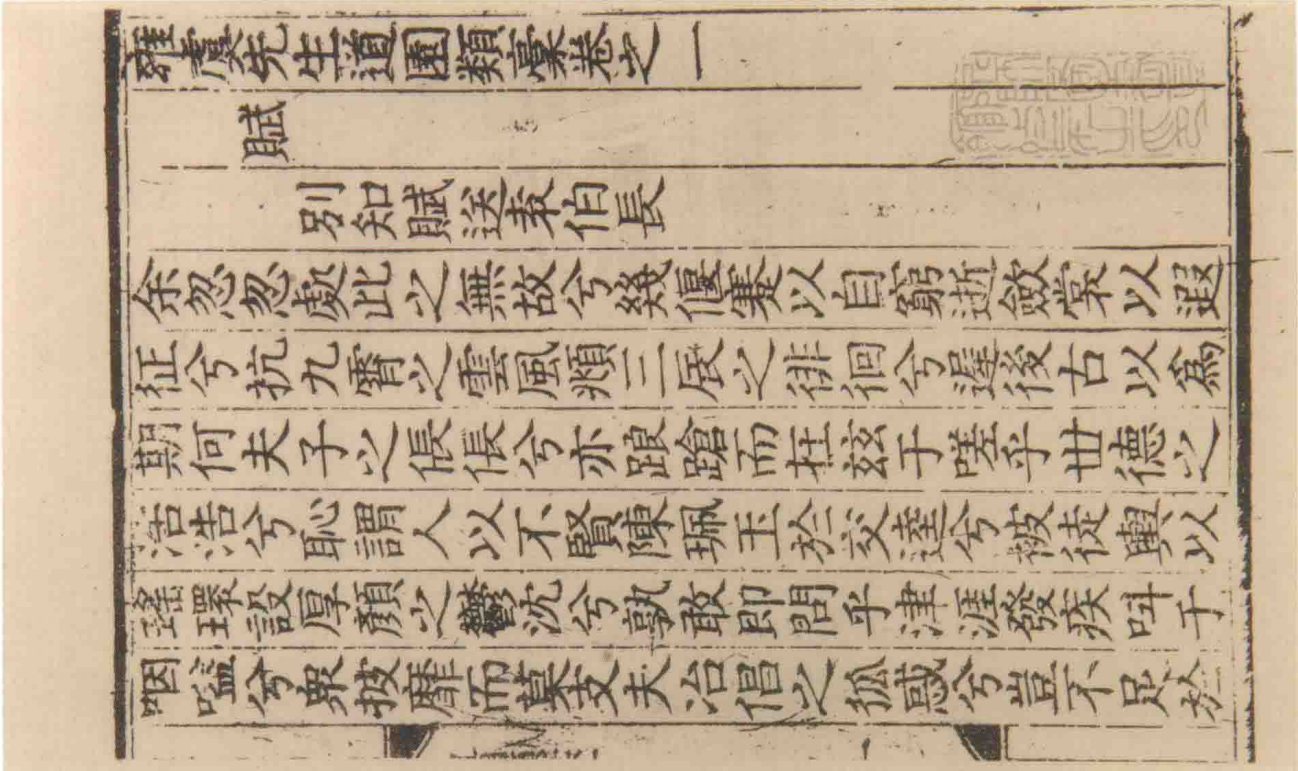 雍虞先生道園類稾卷之一
賦
別知賦送袁伯長
余忽忽處此之無故兮幾偃蹇以自窮逝斂裳以遐
征兮抗九霄之雲風頫三辰之徘徊兮遲後古以爲
期何夫子之倀倀兮亦踉蹌而在玆于嗟乎世德之
浩浩兮恥謂人以不賢陳珮玉於交逵兮被徒輿以
瑤環設厚顏之鬱沈兮孰敢即問乎津涯發疾呌于
咽嗌兮衆披靡而莫支夫冶倡之狐惑兮豈不足於